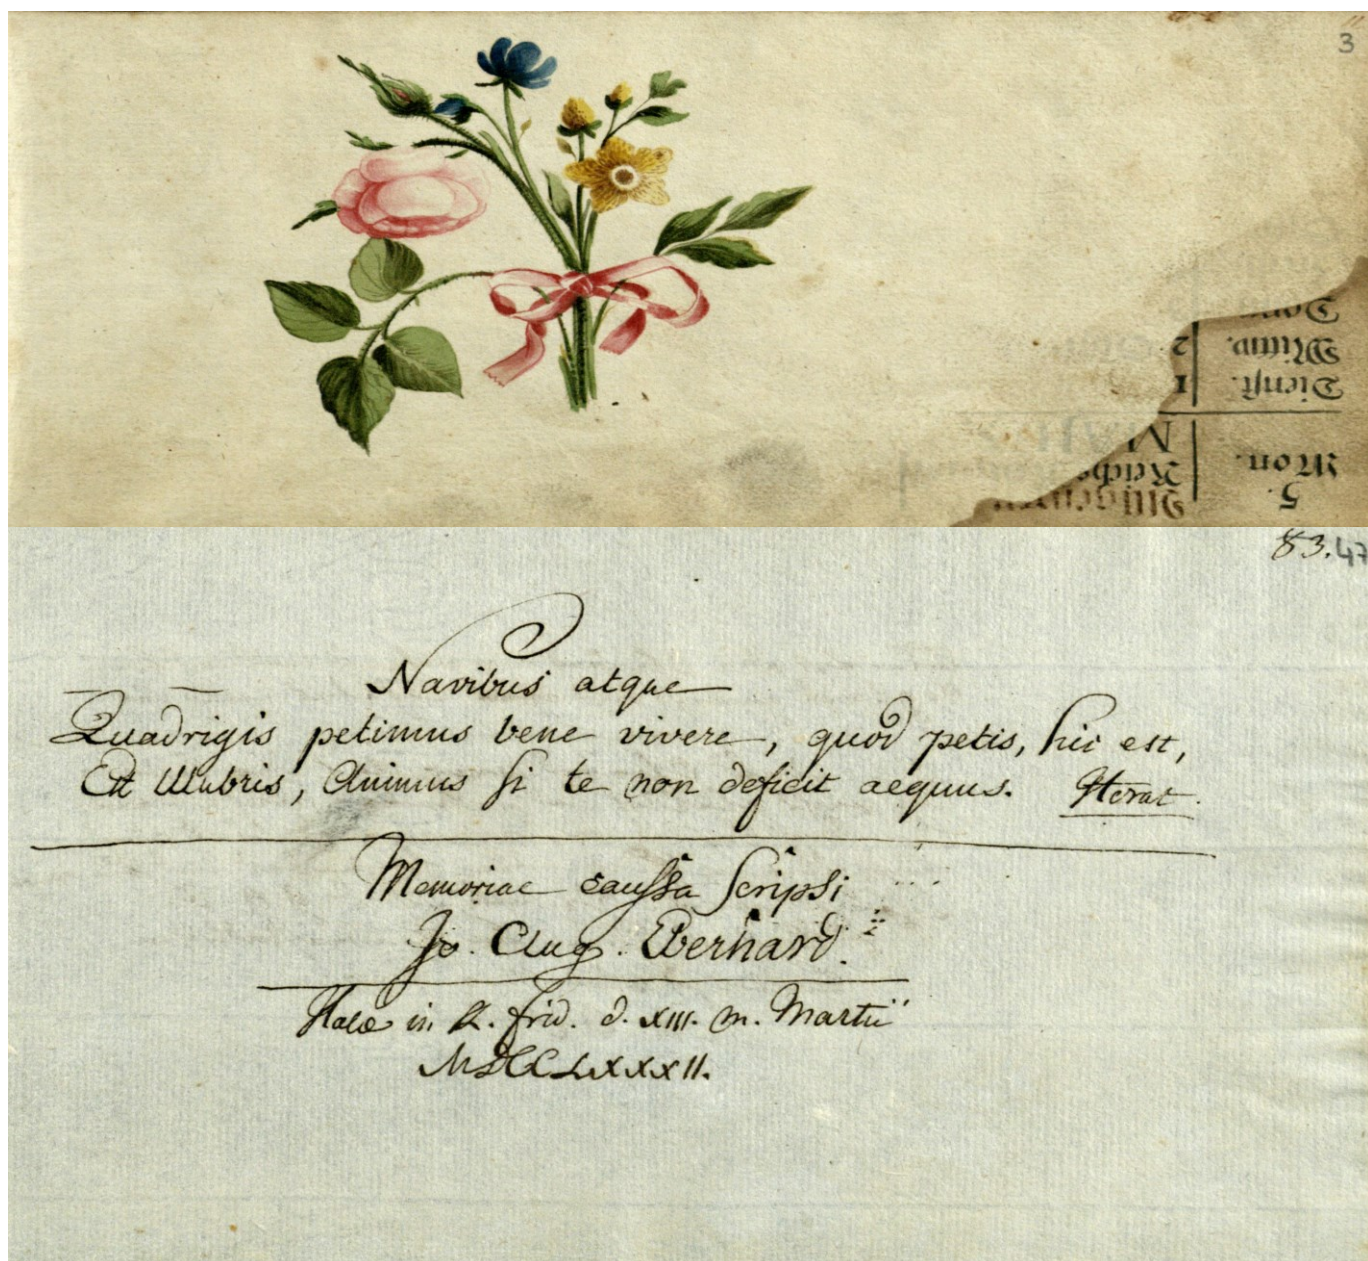 3
Don
Mittw.
2
Dienst.
1
Mon.
5.
83. 47
Navibus atque
Quadrigis petimus bene vivere, quod petis, hic est,
Est Ulubris, Animus si te non deficit aequus. Horat.
Memoriae caussa scripsi
Jo. Aug. Eberhard.
Halae in R. frid. d. XIII. m. Martii
MDCCLXXXII.